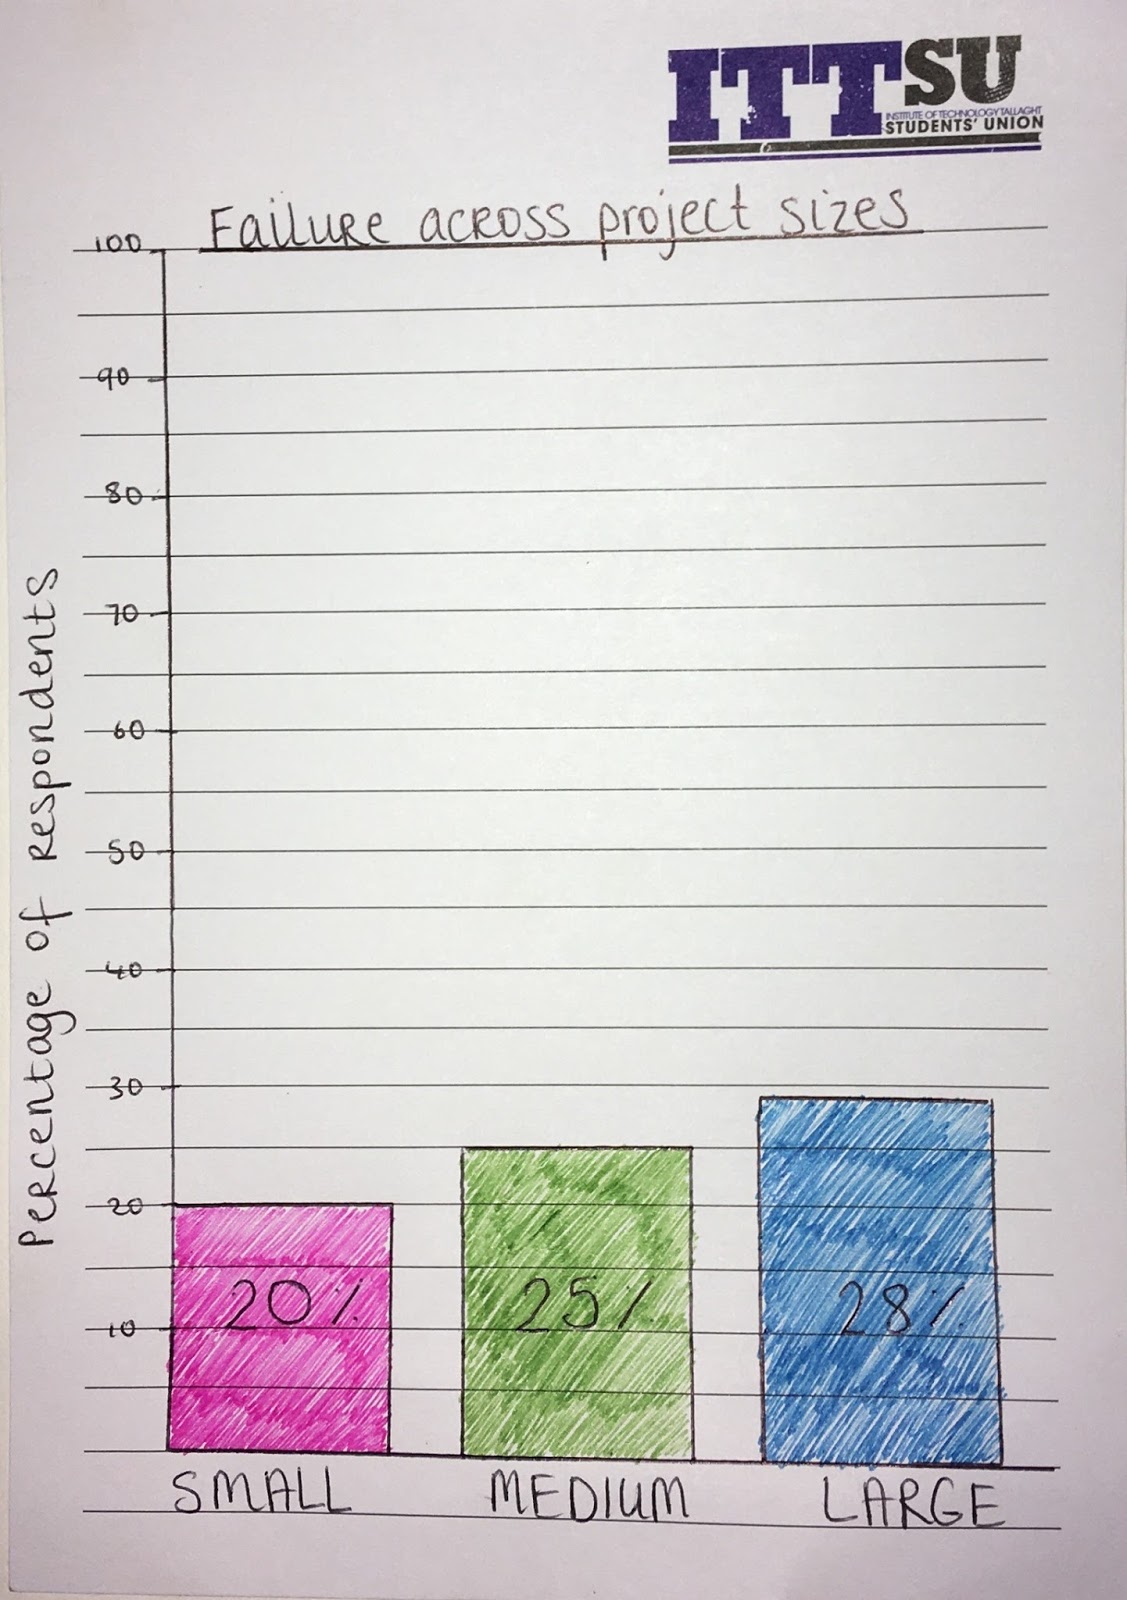 ITTSU
INSTITUTE OF TECHNOLOGY TALLAGHT
STUDENTS' UNION
Failure across project sizes
Percentage of respondents
100
90
80
70
60
50
40
30
20
10
20%
25%
28%
SMALL
MEDIUM
LARGE